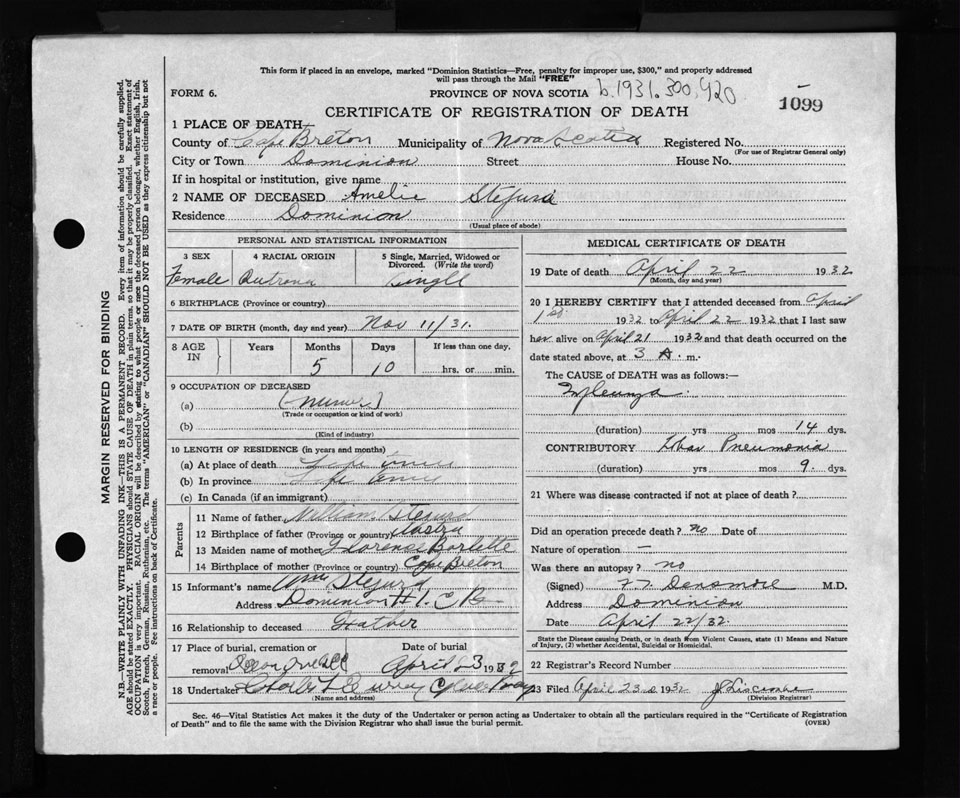 This form if placed in an envelope, marked "Dominion Statistics—Free, penalty for improper use, $300," and properly addressed
will pass through the Mail "FREE"
FORM 6. PROVINCE OF NOVA SCOTIA b.1931.300,420
1099
CERTIFICATE OF REGISTRATION OF DEATH
1 PLACE OF DEATH
County of Cape Breton Municipality of Nova Scotia Registered No.
(For use of Registrar General only)
City or Town Dominion Street House No.
If in hospital or institution, give name
2 NAME OF DECEASED Amelie Stefura
Residence Dominion
(Usual place of abode)
PERSONAL AND STATISTICAL INFORMATION
3 SEX 4 RACIAL ORIGIN 5 Single, Married, Widowed or Divorced. (Write the word)
Female Single
6 BIRTHPLACE (Province or country)
7 DATE OF BIRTH (month, day and year) Nov 11/31.
8 AGE IN Years Months Days If less than one day,
5 10 hrs. or min.
9 OCCUPATION OF DECEASED
(a)
(Trade or occupation or kind of work)
(b)
(Kind of industry)
10 LENGTH OF RESIDENCE (in years and months)
(a) At place of death Life time
(b) In province Life time
(c) In Canada (if an immigrant)
Parents
11 Name of father William Stefura
12 Birthplace of father (Province or country)
13 Maiden name of mother Florence
14 Birthplace of mother (Province or country) Cape Breton
15 Informant's name Wm Stefura
Address Dominion
16 Relationship to deceased Father
17 Place of burial, cremation or removal Date of burial
April 23 1932
18 Undertaker
(Name and address)
MEDICAL CERTIFICATE OF DEATH
19 Date of death April 22 1932
(Month, day and year)
20 I HEREBY CERTIFY that I attended deceased from April
1st 1932 to April 22 1932 that I last saw
her alive on April 21 1932 and that death occurred on the
date stated above, at 3 A. m.
The CAUSE of DEATH was as follows:—
Influenza
(duration) yrs mos 14 dys.
CONTRIBUTORY Lobar Pneumonia
(duration) yrs mos 9. dys.
21 Where was disease contracted if not at place of death?
Did an operation precede death? no Date of
Nature of operation —
Was there an autopsy? no
(Signed) Densmore M.D.
Address Dominion
Date April 22/32.
State the Disease causing Death, or in death from Violent Causes, state (1) Means and Nature
of Injury, (2) whether Accidental, Suicidal or Homicidal.
22 Registrar's Record Number
23 Filed April 23 1932
(Division Registrar)
Sec. 46—Vital Statistics Act makes it the duty of the Undertaker or person acting as Undertaker to obtain all the particulars required in the "Certificate of Registration
of Death" and to file the same with the Division Registrar who shall issue the burial permit. (OVER)
MARGIN RESERVED FOR BINDING
N.B.—WRITE PLAINLY WITH UNFADING INK—THIS IS A PERMANENT RECORD. Every item of information should be carefully supplied.
AGE should be stated EXACTLY. PHYSICIANS should STATE CAUSE OF DEATH in plain terms, so that it may be properly classified. Exact statement of
OCCUPATION is very important. RACIAL ORIGIN will be described by stating to what people or race the deceased person belonged, whether English, Irish,
Scotch, French, German, Russian, Ruthenian, etc. The terms "AMERICAN" or "CANADIAN" SHOULD NOT BE USED as they express citizenship but not
a race or people. See instructions on back of Certificate.